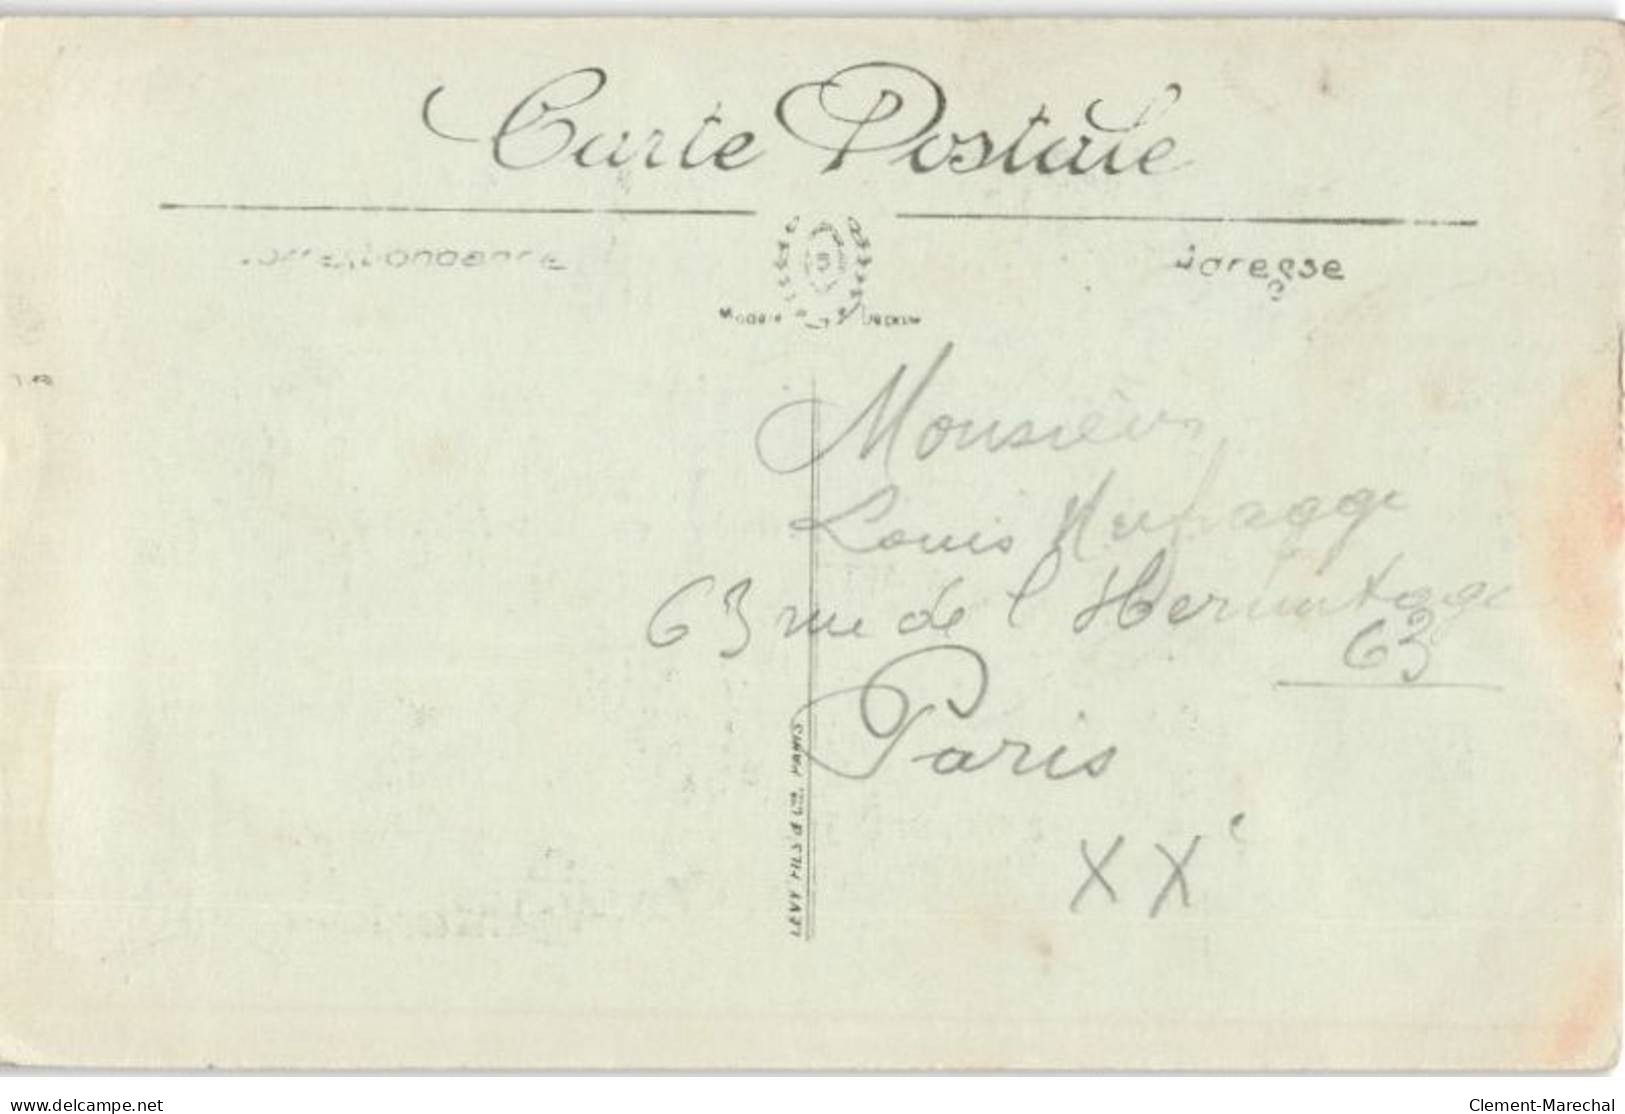 Carte Postale
Correspondance
Adresse
Monsieur
Louis
63 rue de l'Hermitage
63
Paris
XXe
LEVY FILS & Cie, PARIS
www.delcampe.net
Clement-Marechal